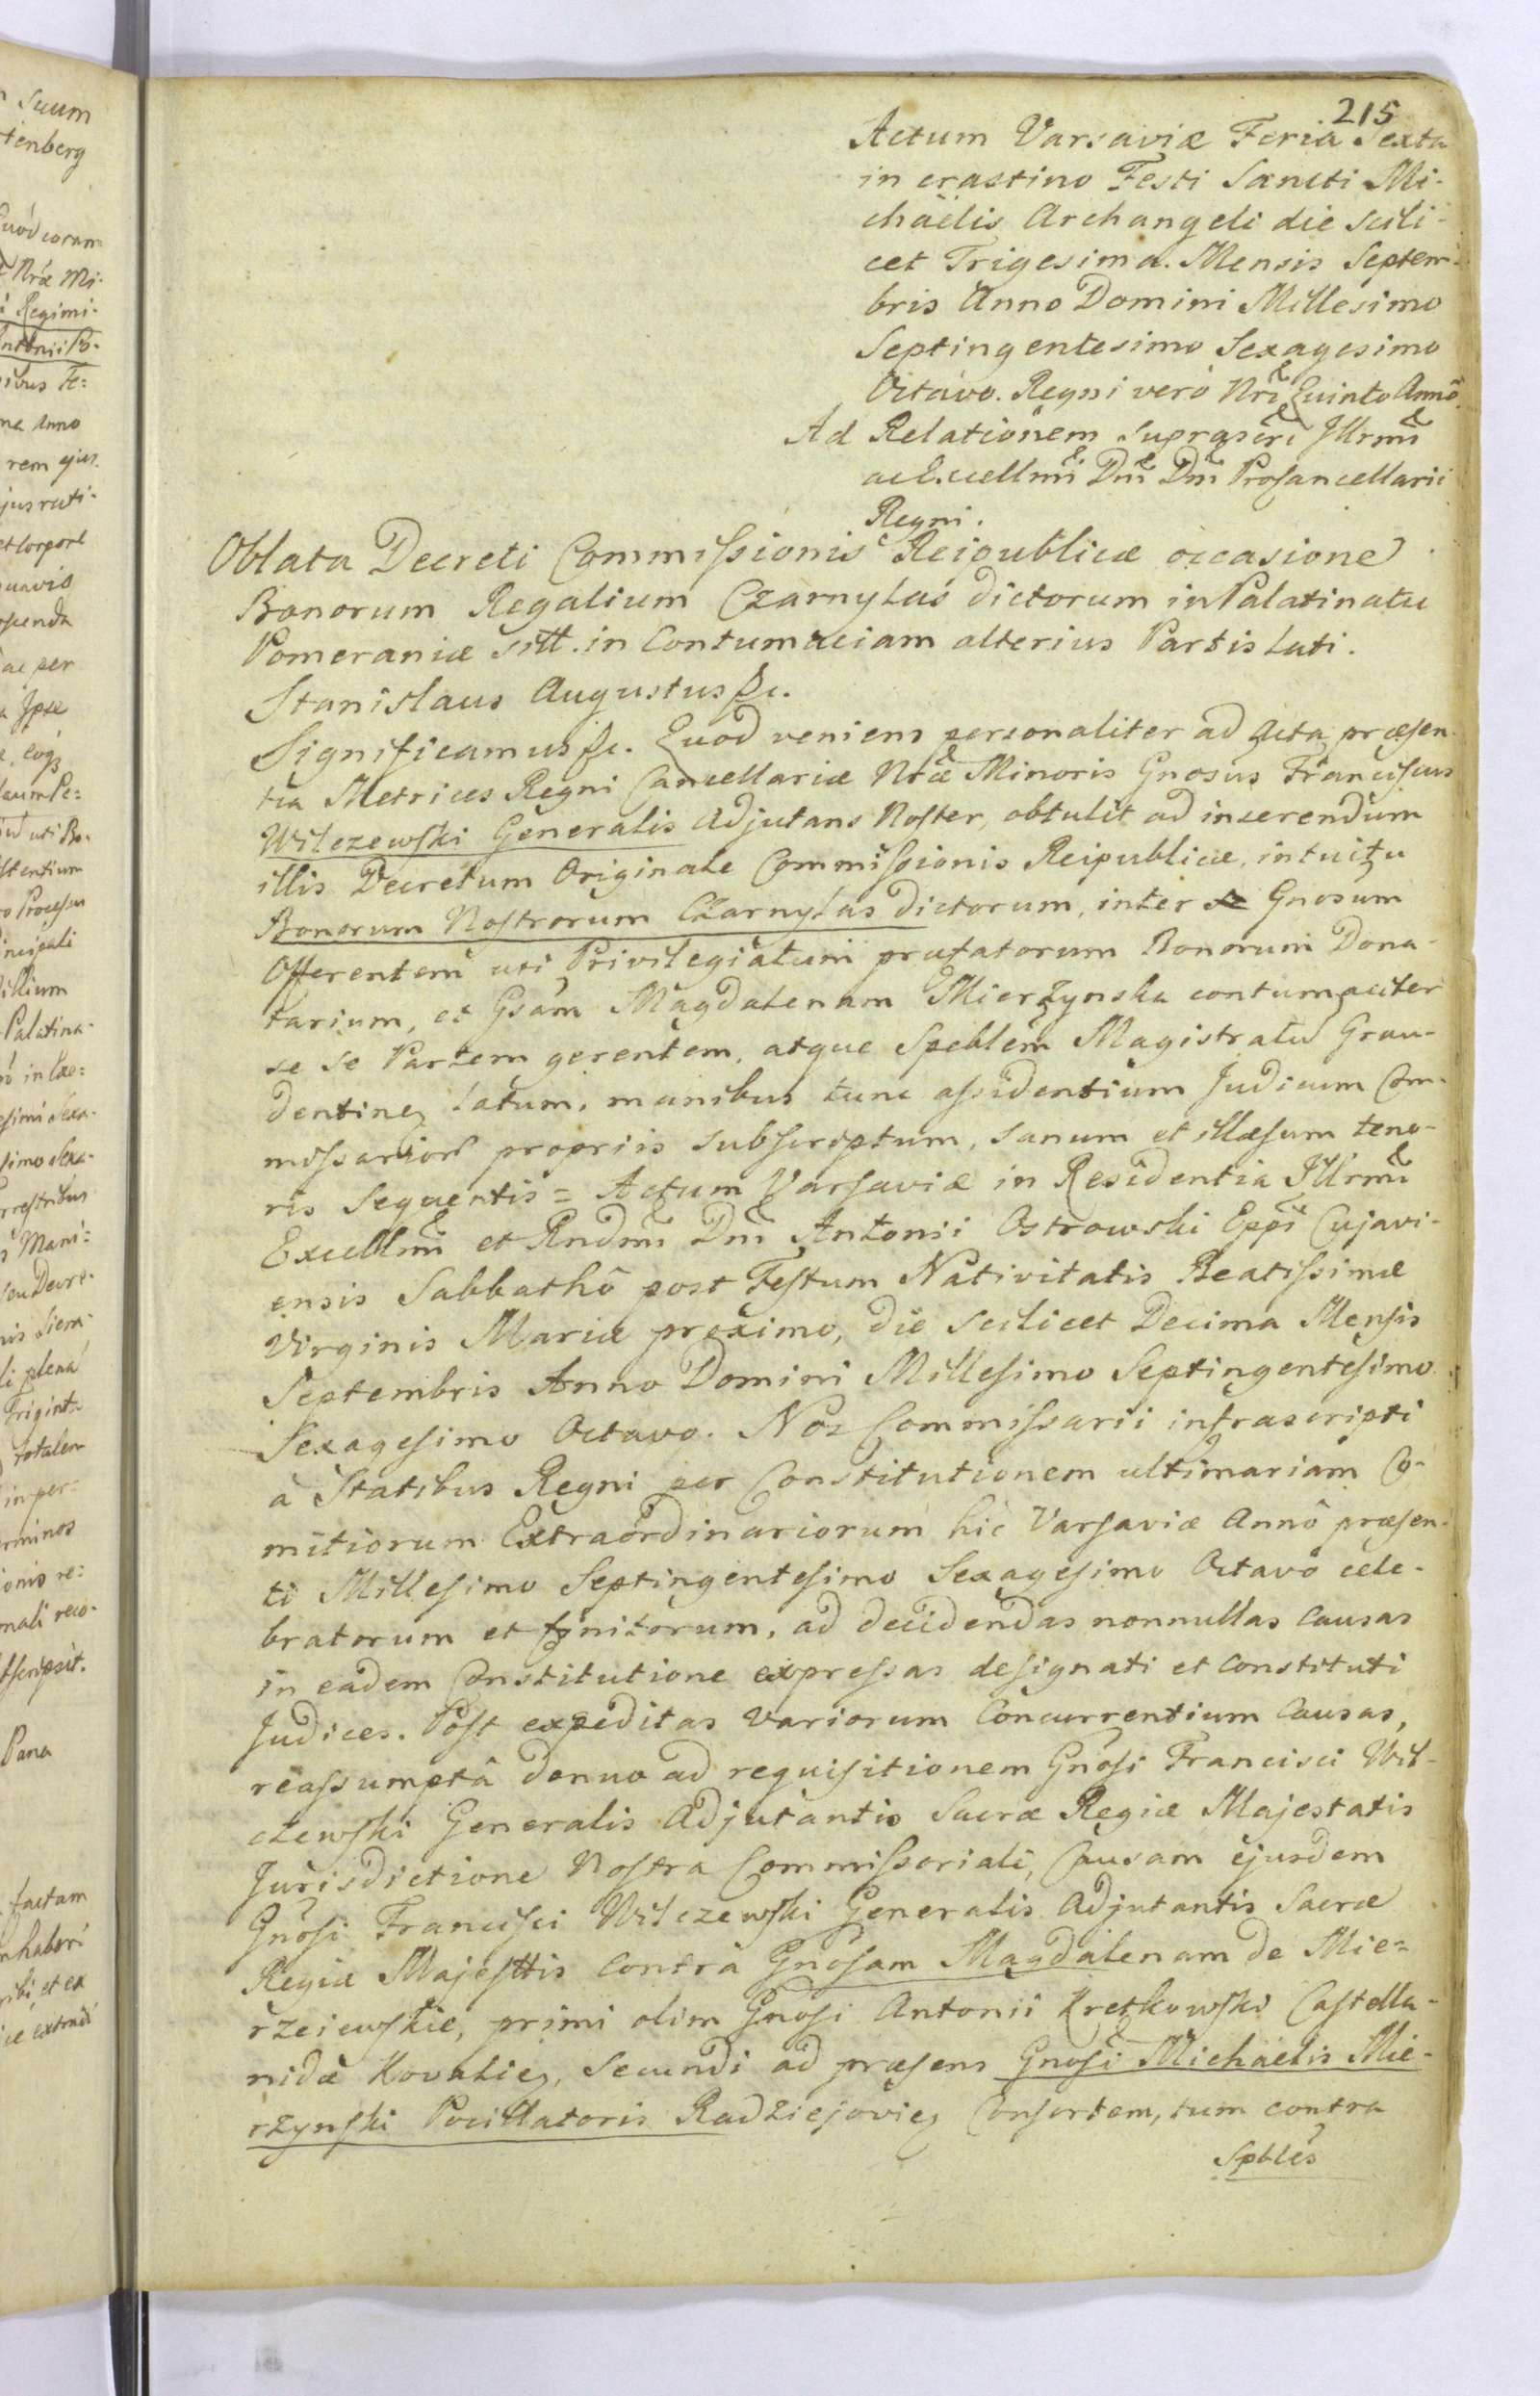 215
Actum Varsaviæ Feria Sexta
in crastino Festi Sancti Mi-
chäelis Archangeli die scili-
cet Trigesima. Mensis Septem-
bris Anno Domini Millesimo
Septingentesimo Sexagesimo
Octavo. Regni verò Nri Quinto Annô.
Ad Relationem suprascri Jllrmi
ac Excellmi Dni Dni Procancellarii
Regni.
Oblata Decreti Commissionis Reipublicæ occasione
Bonorum Regalium Czarnylas dictorum in Palatinatu
Pomeraniæ sitt. in Contumaciam alterius Partis Lati.
Stanislaus Augustus &c.
Significamus &c. Quod veniens personaliter ad Acta præsen-
tia Metrices Regni Cancellariæ Nræ Minoris Gnosus Franciscus
Wilczewski Generalis Adjutans Noster, obtulit ad inserendum
illis Decretum Originale Commissionis Reipublicæ, intuitu
Bonorum Nostrorum Czarnylas dictorum, inter Gnosum
Offerentem uti Privilegiatum præfatorum Bonorum Dona-
tarium, et Gsam Magdalenam Mierzynska contumaciter
se se Partem gerentem, atque Speblem Magistratu Grau-
dentinen latum, manibus tunc assidentium Judicum Com-
missarior propriis subscriptum, sanum et illæsum teno-
ris sequentis = Actum Varsaviæ in Residentia Jllrmi
Excellmi et Rndmi Dni Antonii Ostrowski Eppi Cujavi-
ensis Sabbathô post Festum Nativitatis Beatissimæ
Virginis Mariæ proximo, die scilicet Decima Mensis
Septembris Anno Domini Millesimo Septingentesimo
Sexagesimo Octavo. Nos Commissarii infrascripti
à Statibus Regni per Constitutionem ultimariam Co-
mitiorum Extraordinariorum hic Varsaviæ Annô præsen-
ti Millesimo Septingentesimo Sexagesimo Octavô cele-
bratorum et finitorum, ad decidendas nonnullas Causas
in eâdem Constitutione expressas designati et Constituti
Judices. Post expeditas variorum Concurrentium Causas,
reassumptâ denuo ad requisitionem Gnosi Francisci Wil-
czewski Generalis Adjutantis Sacræ Regiæ Majestatis
Jurisdictione Nostra Commissoriali, Causam ejusdem
Gnosi Francisci Wilczewski Generalis Adjutantis Sacræ
Regiæ Majesttis contrà Gnosam Magdalenam de Mie=
rzeiewskie, primi olim Gnosi Antonii Kretkowski Castella-
nidæ Kovalien, Secundi ad præsens Gnosi Michaelis Mie-
rzynski Pocillatoris Radziejovien Consortem, tum contra
Spbles